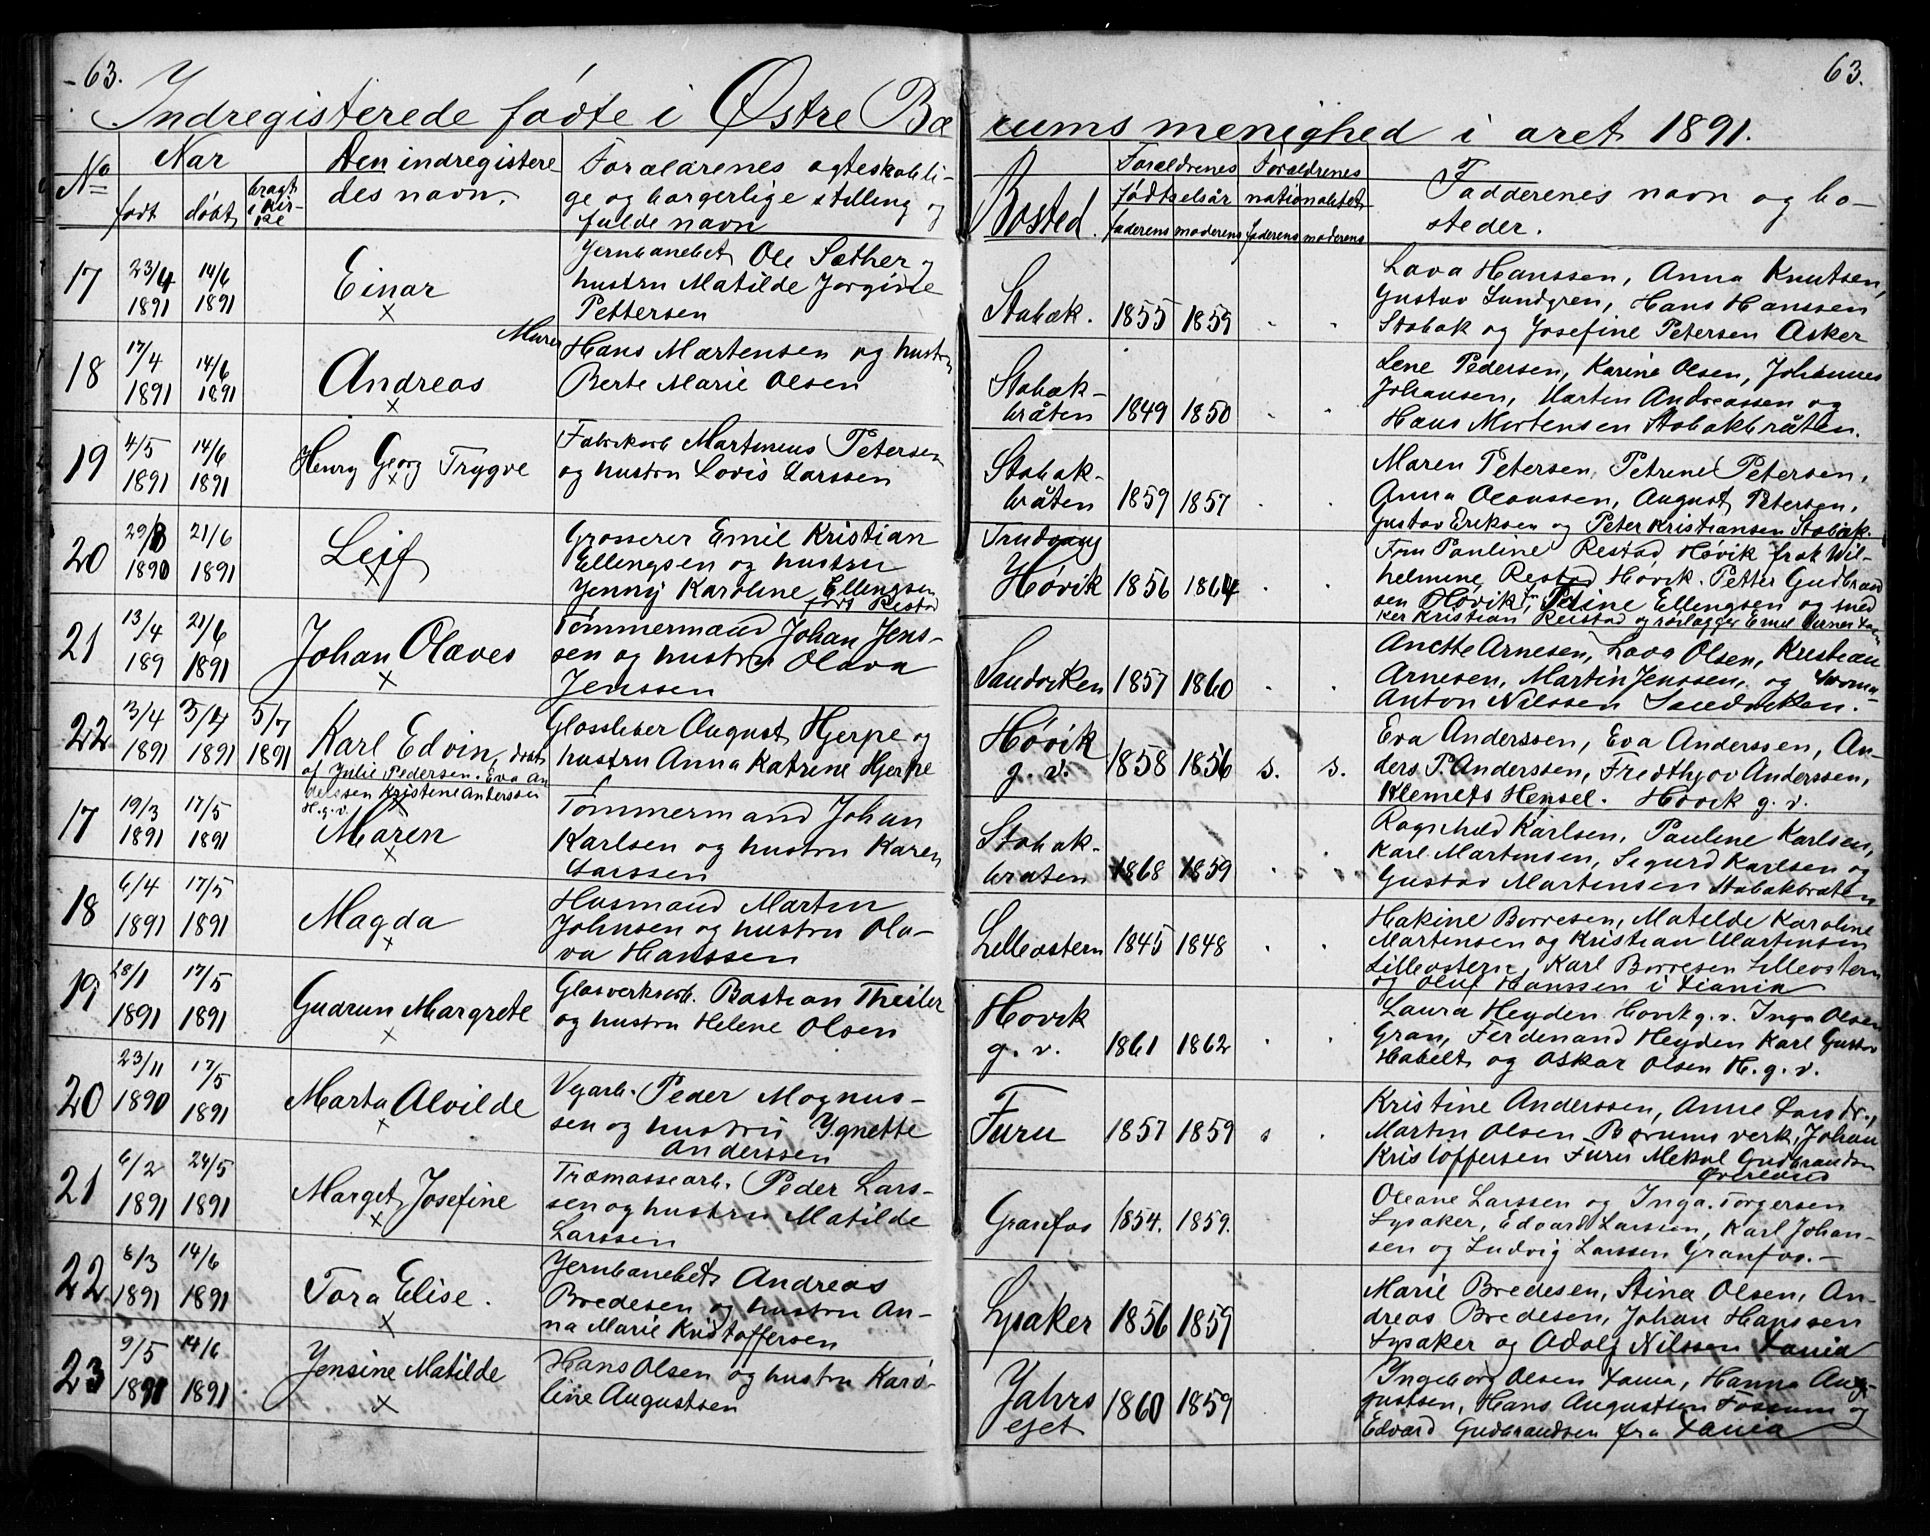 63.
63.
Indregisterede fødte i Østre Bæ
rums menighed i aret 1891.
No
Når
født
døbt
bragt i Kirke
Den indregistere
des navn.
Forældrenes ægteskabli-
ge og borgerlige stilling og
fulde navn
Bosted.
Forældrenes
fødtselsår
faderens moderens
Forældrenes
nationalitet
faderens moderens
Fadderenes navn og bo-
steder.
17
23/4
1891
14/6
1891
Einar
×
Jernbanebet Ole Sæther og
hustru Matilde Jorgine
Pettersen
Stabæk.
1855
1859
Lava Hanssen, Anna Knutsen,
Gustav Lundgren, Hans Hanssen
Stabæk og Josefine Petersen Asker
18
17/4
1891
14/6
1891
Andreas
×
Murer
Hans Martensen og hustru
Berte Marie Olsen
Stabæk-
bråten
1849
1850
Lene Pedersen, Karine Olsen, Johannes
Johansen, Martin Andreassen og
Hans Mortensen Stabækbråten.
19
4/5
1891
14/6
1891
Henry Georg Trygve
×
Fabrikarb Martinius Petersen
og hustru Lovis Larssen
Stabæk-
bråten
1859
1857
Maren Petersen, Petrine Petersen,
Anna Olaussen, August Petersen,
Gustav Eriksen og Peter Kristiansen Stabæk.
20
29/8
1890
21/6
1891
Leif
×
Grosserer Emil Kristian
Ellengsen og hustru
Jenny Karoline Ellengsen
født Restad
Trudvang
Høvik
1856
1864
Fru Pauline Restad Høvik, frøk Wil-
helmine Restad Høvik. Petter Gudbrand
sen Høvik, Fr. Petrine Ellengsen og sned
ker Kristian Reistad og rørlægger Emil
21
13/4
189
21/6
1891
Johan Olaves
×
Tømmermand Johan Jens-
sen og hustru Olava
Jenssen
Sandviken
1857
1860
Anette Arnesen, Lava Olsen, Kristian
Arnesen, Martin Jenssen, og
Anton Nilssen Sandviken.
22
13/4
1891
3/4
1891
5/7
1891
Karl Edvin, døbt
af Julie Pedersen. Eva An
derssen Kristine Anderssen
H.g.v.
×
Glassliber August Hjerpe og
hustru Anna Katrine Hjerpe
Høvik
g. v.
1858
1856
s.
s.
Eva Anderssen, Eva Anderssen, An-
ders P. Anderssen, Fredthjov Anderssen,
Klemets Hensel. Høvik g. v.
17
19/3
1891
17/5
1891
Maren
×
Tømmermand Johan
Karlsen og hustru Karen
Larssen
Stabæk-
braten
1868
1859
Ragnhild Karlsen, Pauline Karlsen,
Karl Martinsen, Sigurd Karlsen og
Gustav Martensen Stabækbråten
18
6/4
1891
17/5
1891
Magda
×
Husmand Marten
Johnsen og hustru Ola-
va Hanssen
Lilleøstern
1845
1848
Hakine Borresen, Matilde Karoline
Martensen og Kristian Martensen
Lilleøstern, Karl Borresen Lilleøstern
og Oluf Hanssen i Xiania
19
28/1
1891
17/5
1891
Gudrun Margrete
×
Glasverksarb. Bastian Theiler
og hustru Helene Olsen
Høvik
g. v.
1861
1862
Laura Heyden Høvik g. v. Inga Olsen
Gran, Ferdenand Heyden Karl Gustav
Habelt og Oskar Olsen H. g. v.
20
23/11
1890
17/5
1891
Marta Alvilde
×
Vejarb. Peder Magnus-
sen og hustru Ygnette
Anderssen
Furu
1857
1859
s
Kristine Anderssen, Anne Lands.,
Martin Olsen Bærums verk, Johan
Kristoffersen Furu Mekal Gudbrandsen
Øverland
21
6/2
1891
24/5
1891
Marget Josefine
×
Træmassearb. Peder Lars-
sen og hustru Matilde
Larssen
Granfos
1854.
1859.
Oleane Larssen og Inga Torgersen
Lysaker, Edvard Larssen, Karl Johan-
sen og Ludvig Larssen Granfos.-
22
8/3
1891
14/6
1891
Tora Elise.
×
Jernbanebet Andreas
Bredesen og hustru An-
na Marie Kristoffersen
Lysaker
1856
1859
Marie Bredesen, Stina Olsen, An-
dreas Bredesen, Johan Hanssen
Lysaker og Adolf Nilssen Xania
23
9/5
1891
14/6
1891
Jensine Matilde
×
Hans Olsen og hustru Karo-
line Augustsen
Jahrs
ejet
1860
1859
Ingeborg Olsen Xania, Hanna Aug-
gustsen, Hans Augustsen Fossum og
Edvard Gudbrandsen fra Xania